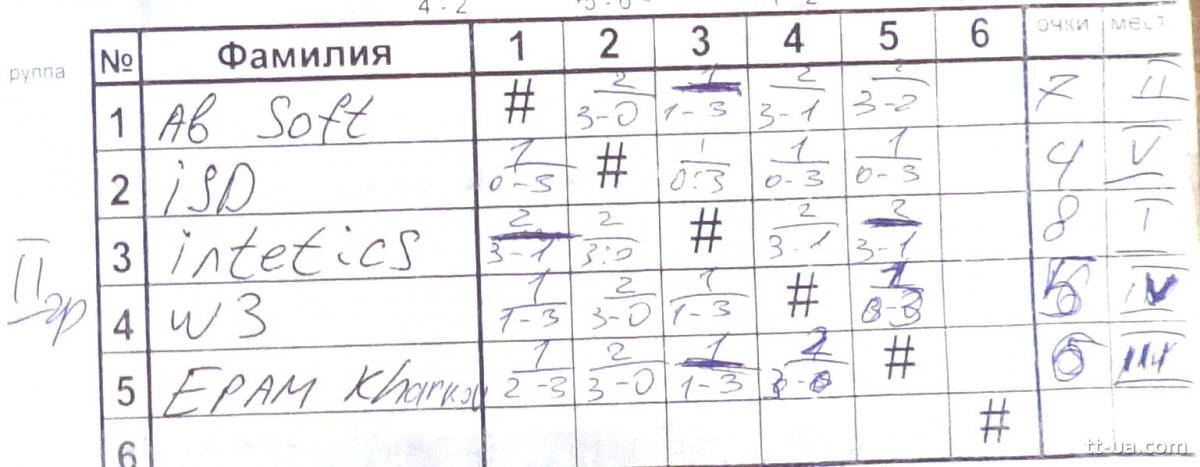 4-2
№ Фамилия 1 2 3 4 5 6 очки мест
руппа
1 AB Soft # 2 3-0 1 1-3 2 3-1 2 3-2 7 II
2 iSD 1 0-3 # 1 0:3 1 0-3 1 0-3 4 V
3 intetics 2 3-1 2 3:0 # 2 3-1 2 3-1 8 I
II гр
4 W3 1 1-3 2 3-0 1 1-3 # 1 0-3 IV
5 EPAM Kharkov 1 2-3 2 3-0 1 1-3 2 3-0 # 6 III
6 #
tt-ua.com